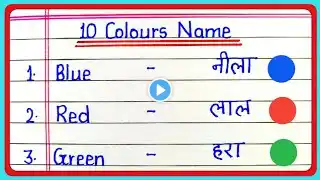 10 Colours Name
1. Blue - नीला
2. Red - लाल
3. Green - हरा